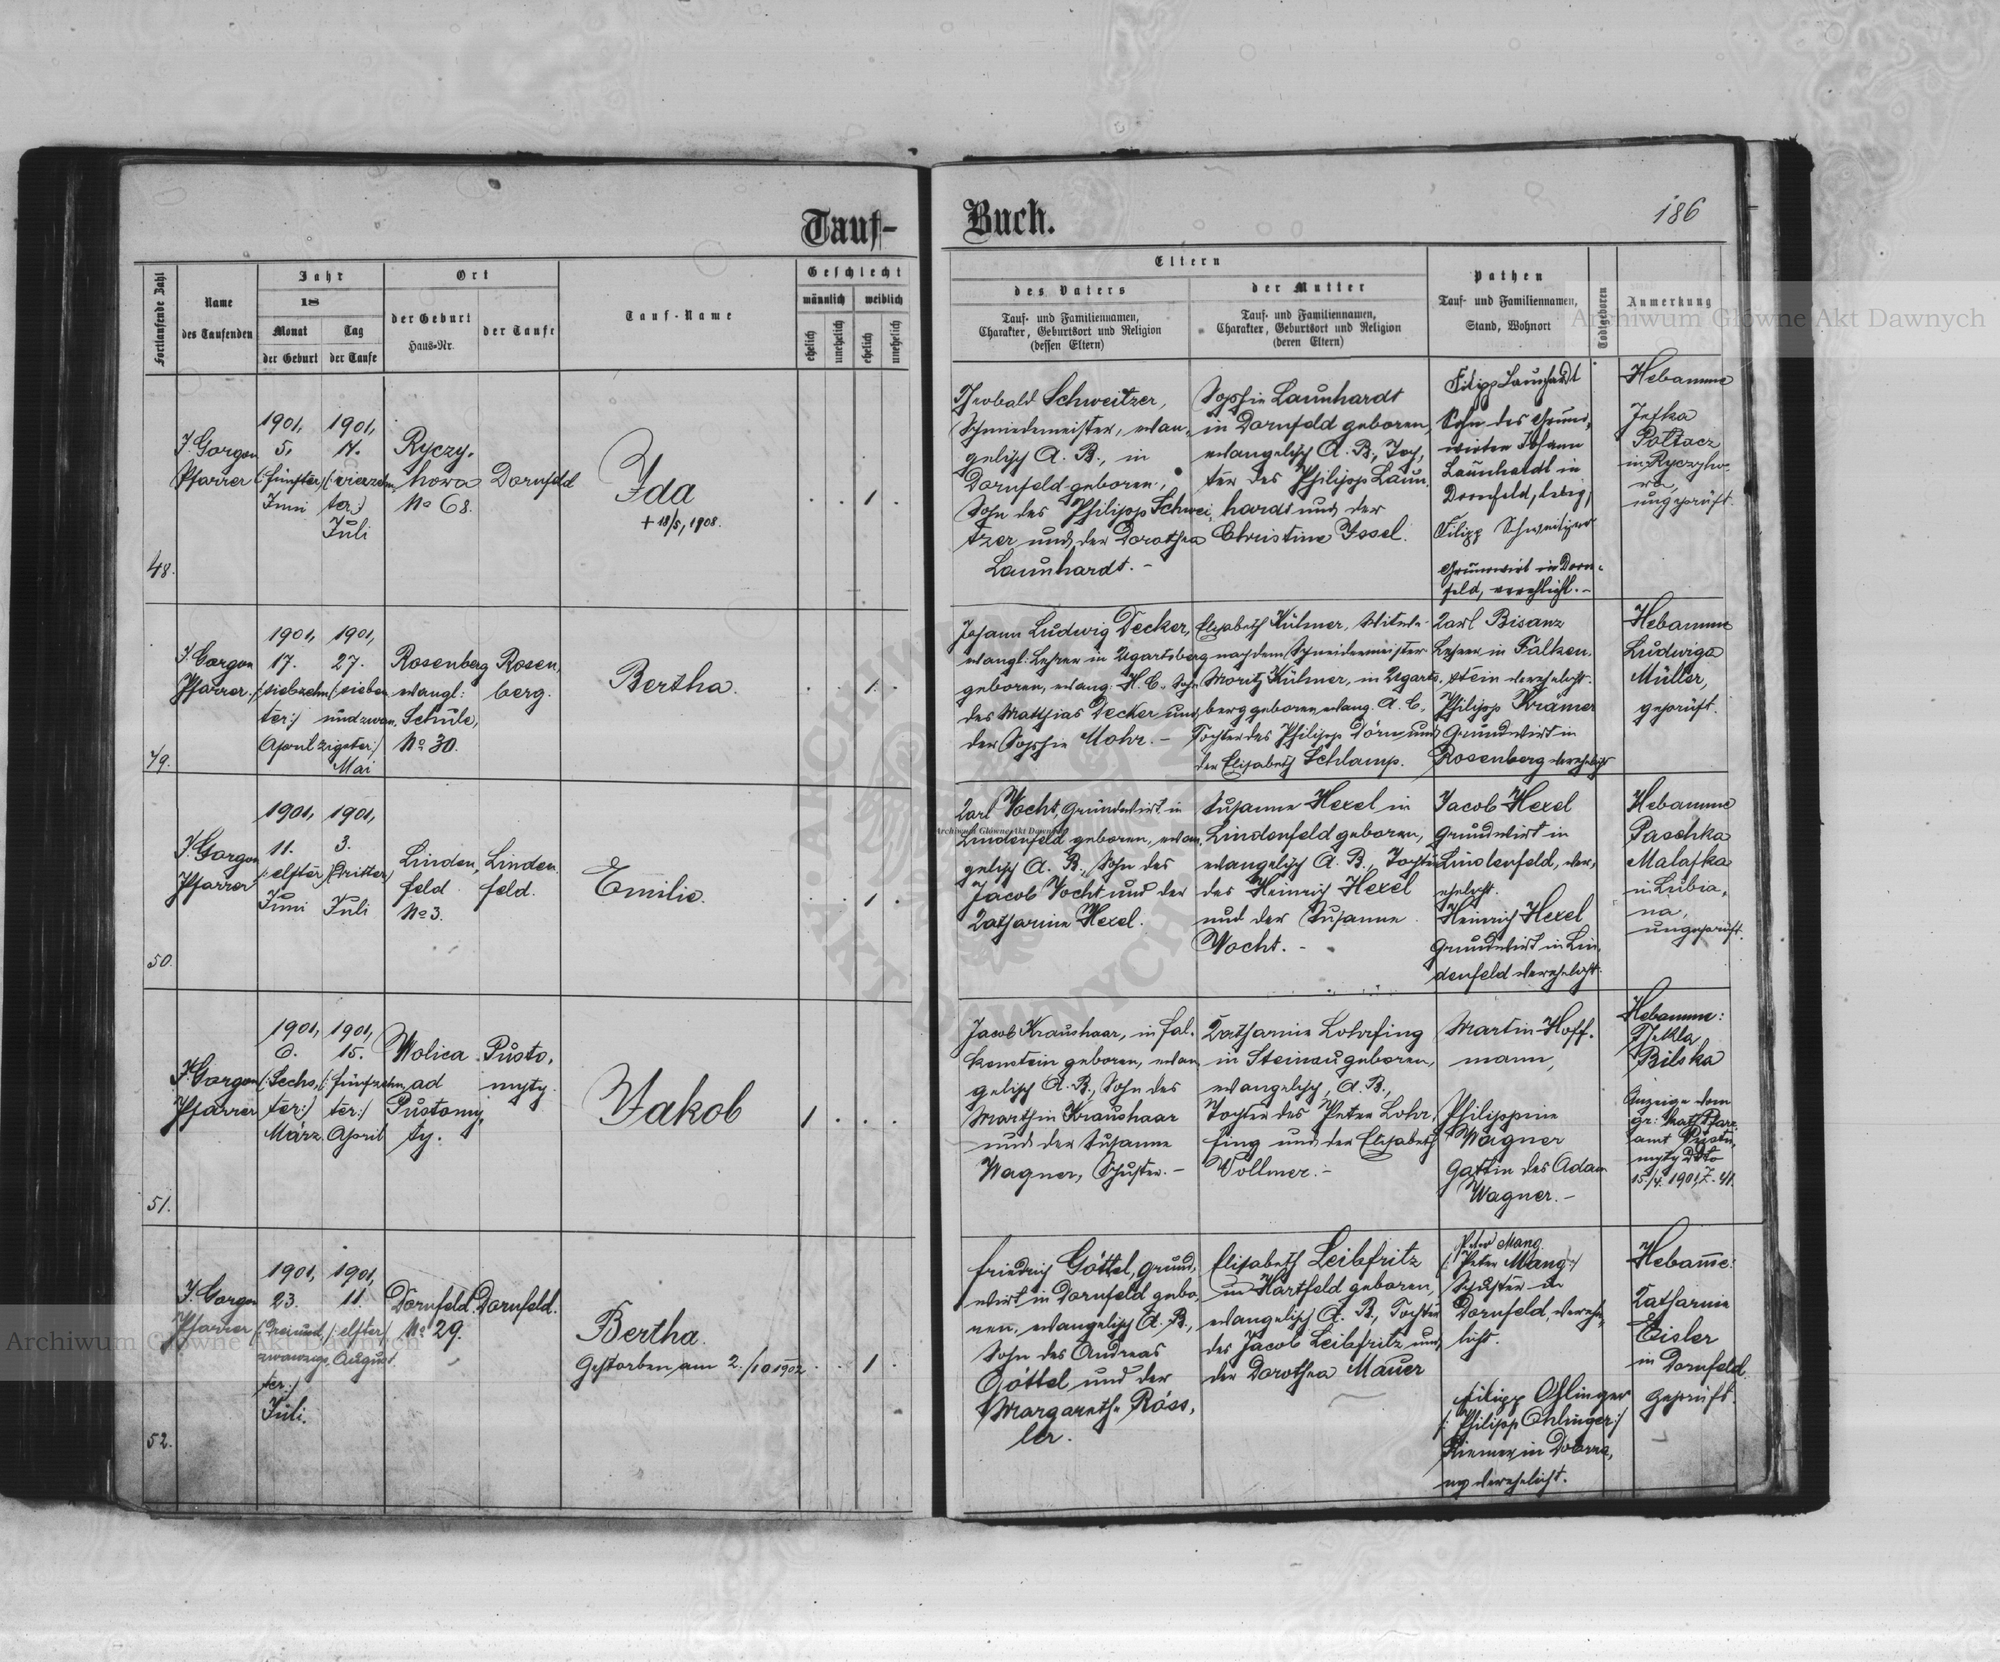 Tauf-
Buch.
186
Fortlaufende Zahl
Name
des Taufenden
Jahr
18
Monat
der Geburt
Tag
der Taufe
Ort
der Geburt
Haus-Nr.
der Taufe
Tauf-Name
Geschlecht
männlich
weiblich
ehelich
unehelich
ehelich
unehelich
Eltern
des Vaters
Tauf- und Familiennamen,
Charakter, Geburtsort und Religion
(dessen Eltern)
der Mutter
Tauf- und Familiennamen,
Charakter, Geburtsort und Religion
(deren Eltern)
Pathen
Tauf- und Familiennamen,
Stand, Wohnort
Todtgeboren
Anmerkung
48.
J. Gorgon
Pfarrer
1901,
5.
(:fünfter:)
Juni
1901,
ter:)
Juli
Ryczy-
howa
No 68.
Dornfeld
Ida
+ 18/5, 1908.
1
Theobald Schweitzer,
Schmiedemeister, evan-
gelisch A. B., in
Dornfeld geboren,
Sohn des Philipp Schwei-
tzer und der Dorothea
Launhardt. -
Sophie Launhardt
in Dornfeld geboren,
evangelisch A. B., Toch-
ter des Philipp Laun-
hardt und der
Christine Issel.
Filipp Launhardt
Sohn des Grund-
wirten Johann
Launhardt in
Dornfeld, ledig,
Filipp Schweitzer
Grundwirt in Dorn-
feld, verehlicht. -
Hebamme
in Ryczyho-
wa,
ungeprüft.
49.
J. Gorgon
Pfarrer.
1901,
17.
(:siebzehn-
ter:)
April
1901,
27.
(:sieben
undzwan-
zigster:)
Mai
Rosenberg
evangl:
Schule,
No 30.
Rosen-
berg.
Bertha.
1.
Johann Ludwig Decker,
evangl: Lehrer in Ugartsberg
geboren, evang. H. C., Sohn
des Mathias Decker und
der Sophie Mohr. -
Elisabeth Kühner, Witwe
nach dem Schneidermeister
Moritz Kühner, in Ugarts-
berg geboren evang. A. C.,
Tochter des Philipp Dörn und
der Elisabeth Schlamp.
Karl Bisanz
Lehrer in Falken-
stein verehelicht.
Philipp Krämer
Grundwirt in
Rosenberg verehelicht
Hebamme
Ludwiga
Müller,
geprüft.
50.
J. Gorgon
Pfarrer
1901,
11.
(:elfter:)
Juni
1901,
3.
(:dritter:)
Juli
Linden-
feld
No 3.
Linden-
feld.
Emilie.
1
Karl Vocht, Grundwirt in
Lindenfeld geboren, evan-
gelisch A. B., Sohn des
Jacob Vocht und der
Katharine Hexel.
Susanne Hexel in
Lindenfeld geboren,
evangelisch A. B., Tochter
des Heinrich Hexel
und der Susanne
Vocht. -
Jacob Hexel
Grundwirt in
Lindenfeld, ver-
ehelicht.
Heinrich Hexel
Grundwirt in Lin-
denfeld verehelicht.
Hebamme
Paschka
Malaska
in Lubia-
na,
ungeprüft.
51.
J. Gorgon
Pfarrer
1901,
6.
(:Sechs-
ter:)
März
1901,
15.
(:fünfzehn-
ter:)
April
Wolica
ad
Pustomy-
ty.
Pusto-
myty.
Jakob
1
Jacob Kraushaar, in Fal-
kenstein geboren, evan-
gelisch A. B., Sohn des
Martin Kraushaar
und der Susanne
Wagner, Schuster. -
Katharine Lohrfing
in Steinau geboren,
evangelisch, A. B.,
Tochter des Peter Lohr-
fing und der Elisabeth
Vollmer. -
Martin Hoff-
mann,
Philippine
Wagner
Gattin des Adam
Wagner. -
Hebamme:
Thekla
Bilska
Anzeige vom
gr: kath. Pfarr-
amt Pusto-
myty dto
15./4. 1901, Z. 41.
52.
J. Gorgon
Pfarrer
1901,
23.
(:dreiund-
zwanzigs-
ter:)
Juli.
1901,
11.
(:elfter:)
August.
Dornfeld.
No 29.
Dornfeld.
Bertha.
Gestorben am 2./10 1902
1
Friedrich Göttel, Grund-
wirt in Dornfeld gebo-
ren, evangelisch A. B.,
Sohn des Andreas
Göttel und der
Margarethe Röss-
ler.
Elisabeth Leibfritz
in Hartfeld geboren,
evangelisch A. B., Tochter
des Jacob Leibfritz und
der Dorothea Mauer
Peter Mang
(:Peter Mang:)
Schuster in
Dornfeld, verehe-
licht.
Filipp Ohlinger
(:Philipp Ohlinger:)
Riemer in Dobrza-
ny verehelicht.
Hebamme:
Katharine
Eisler
in Dornfeld
Geprüft.
Archiwum Główne Akt Dawnych
Archiwum Główne Akt Dawnych
Archiwum Główne Akt Dawnych